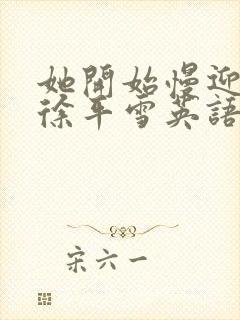 她開始慢迎
徐平雪英語
宋六一